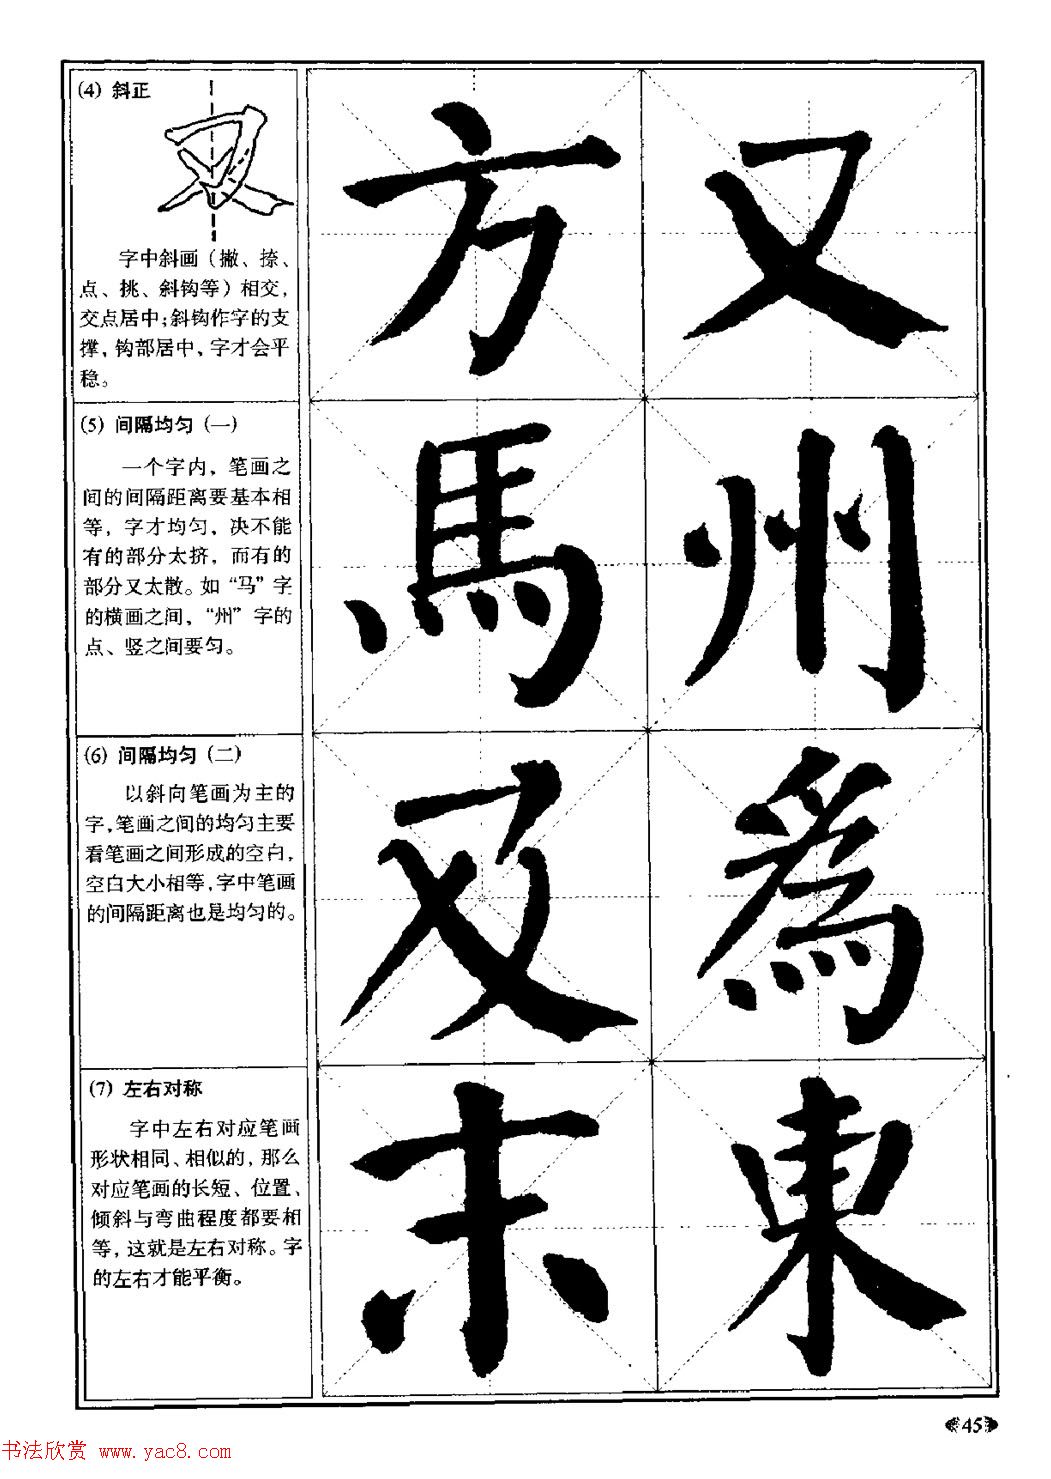 (4) 斜正
字中斜画（撇、捺、
点、挑、斜钩等）相交，
交点居中;斜钩作字的支
撑，钩部居中、字才会平
稳。
方又
(5) 间隔均匀（一）
一个字内，笔画之
间的间隔距离要基本相
等，字才均匀，决不能
有的部分太挤，而有的
部分又太散。如“马”字
的横画之间，“州”字的
点、竖之间要匀。
馬州
(6) 间隔均匀（二）
以斜向笔画为主的
字，笔画之间的均匀主要
看笔画之间形成的空白，
空白大小相等，字中笔画
的间隔距离也是均匀的。
及為
(7) 左右对称
字中左右对应笔画
形状相同、相似的，那么
对应笔画的长短、位置、
倾斜与弯曲程度都要相
等，这就是左右对称。字
的左右才能平衡。
末東
45
书法欣赏 www.yac8.com